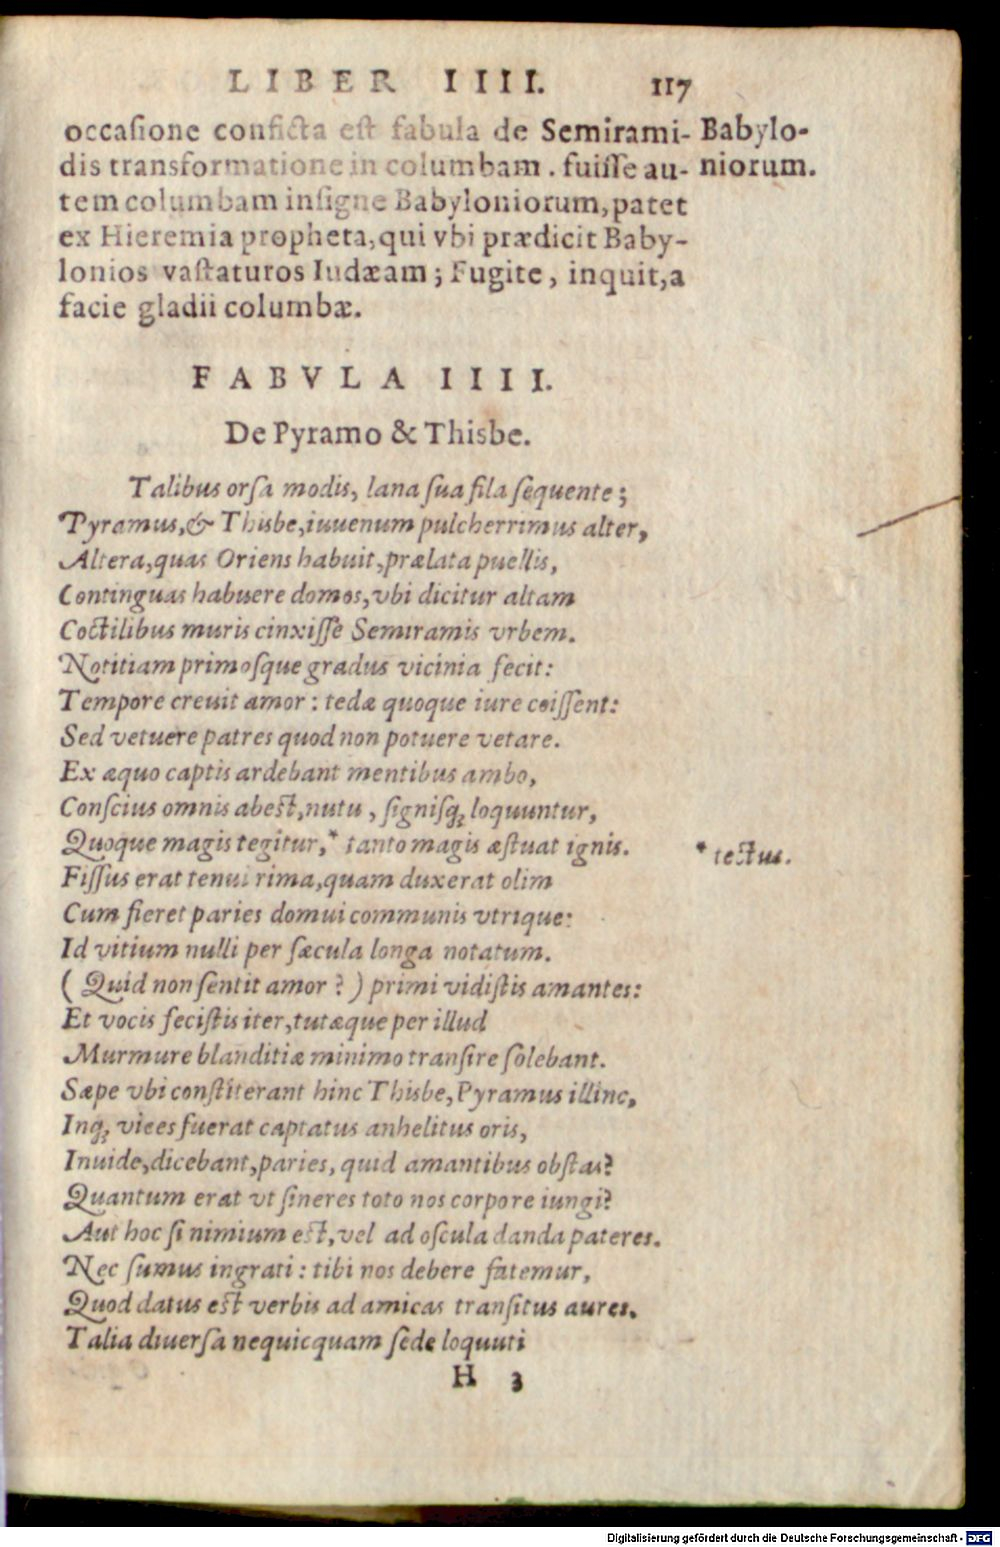 LIBER IIII. 117
occaſione conficta eſt fabula de Semirami- Babylo-
dis transformatione in columbam. fuiſſe au- niorum.
tem columbam inſigne Babyloniorum, patet
ex Hieremia propheta, qui vbi prædicit Baby-
lonios vaſtaturos Iudæam; Fugite, inquit, a
facie gladii columbæ.
FABVLA IIII.
De Pyramo & Thisbe.
Talibus orſa modis, lana ſua fila ſequente;
Pyramus, & Thisbe, iuuenum pulcherrimus alter,
Altera, quas Oriens habuit, prælata puellis,
Contiguas habuere domos, vbi dicitur altam
Coctilibus muris cinxiſſe Semiramis vrbem.
Notitiam primoſque gradus vicinia fecit:
Tempore creuit amor: tedæ quoque iure coiſſent:
Sed vetuere patres quod non potuere vetare.
Ex æquo captis ardebant mentibus ambo,
Conſcius omnis abeſt, nutu, ſigniſq; loquuntur,
Quoque magis tegitur,* tanto magis æſtuat ignis. * tectus.
Fiſſus erat tenui rima, quam duxerat olim
Cum fieret paries domui communis vtrique:
Id vitium nulli per ſæcula longa notatum.
(Quid non ſentit amor?) primi vidiſtis amantes:
Et vocis feciſtis iter, tutæque per illud
Murmure blanditiæ minimo tranſire ſolebant.
Sæpe vbi conſtiterant hinc Thisbe, Pyramus illinc,
Inq; vices fuerat captatus anhelitus oris,
Inuide, dicebant, paries, quid amantibus obſtas?
Quantum erat vt ſineres toto nos corpore iungi?
Aut hoc ſi nimium eſt, vel ad oſcula danda pateres.
Nec ſumus ingrati: tibi nos debere fatemur,
Quod datus eſt verbis ad amicas tranſitus aures.
Talia diuerſa nequicquam ſede loquuti
H 3
Digitalisierung gefördert durch die Deutsche Forschungsgemeinschaft - DFG